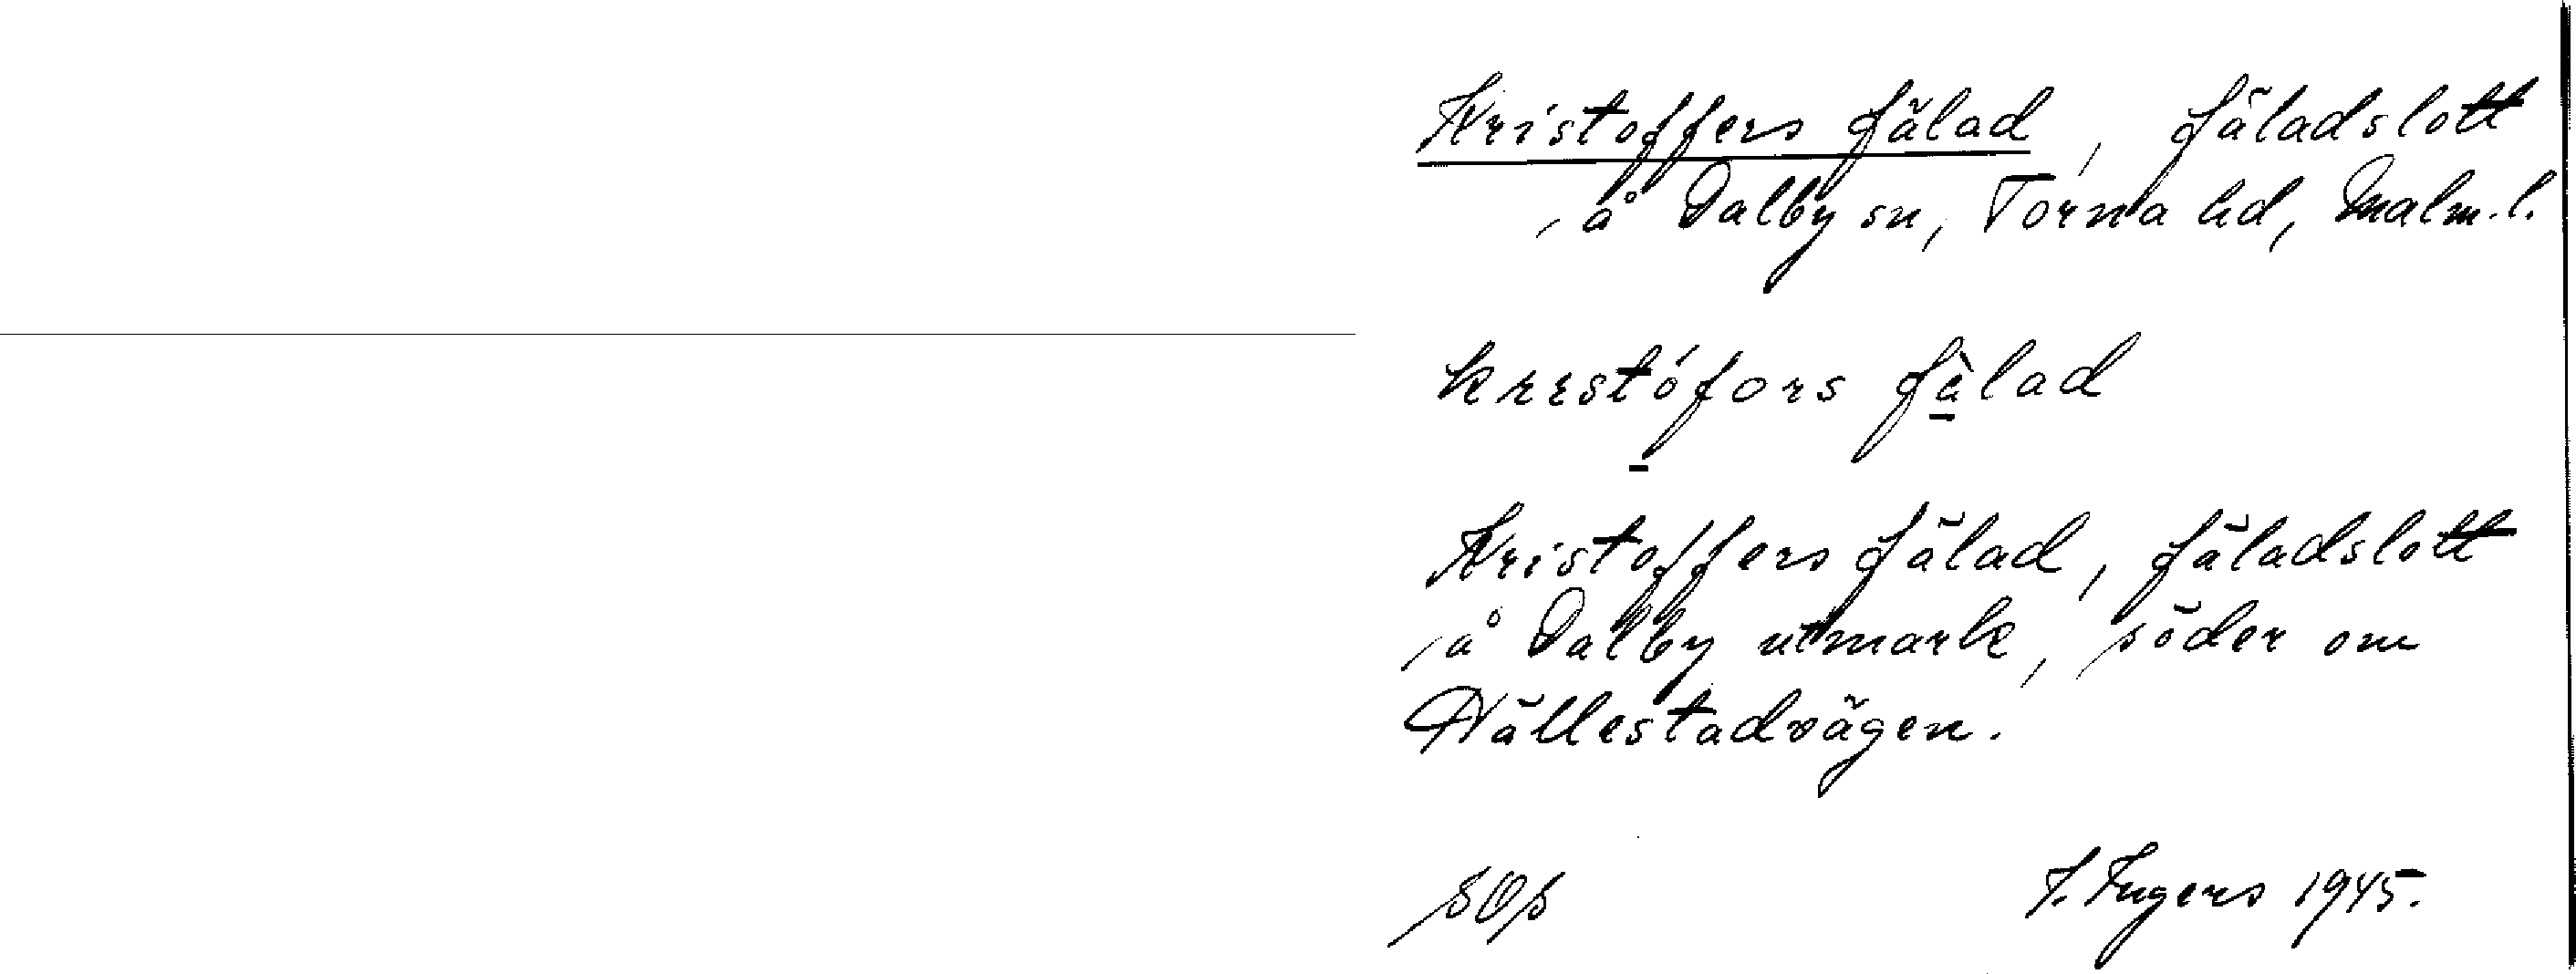 Kristoffers fälad, fäladslott
, å Dalby sn, Torna hd, Malm. l.
krestófors fèlad
Kristoffers fälad, fäladslott
, å Dalby utmark, söder om
Hällestadvägen.
SOS
I. Ingers 1945.